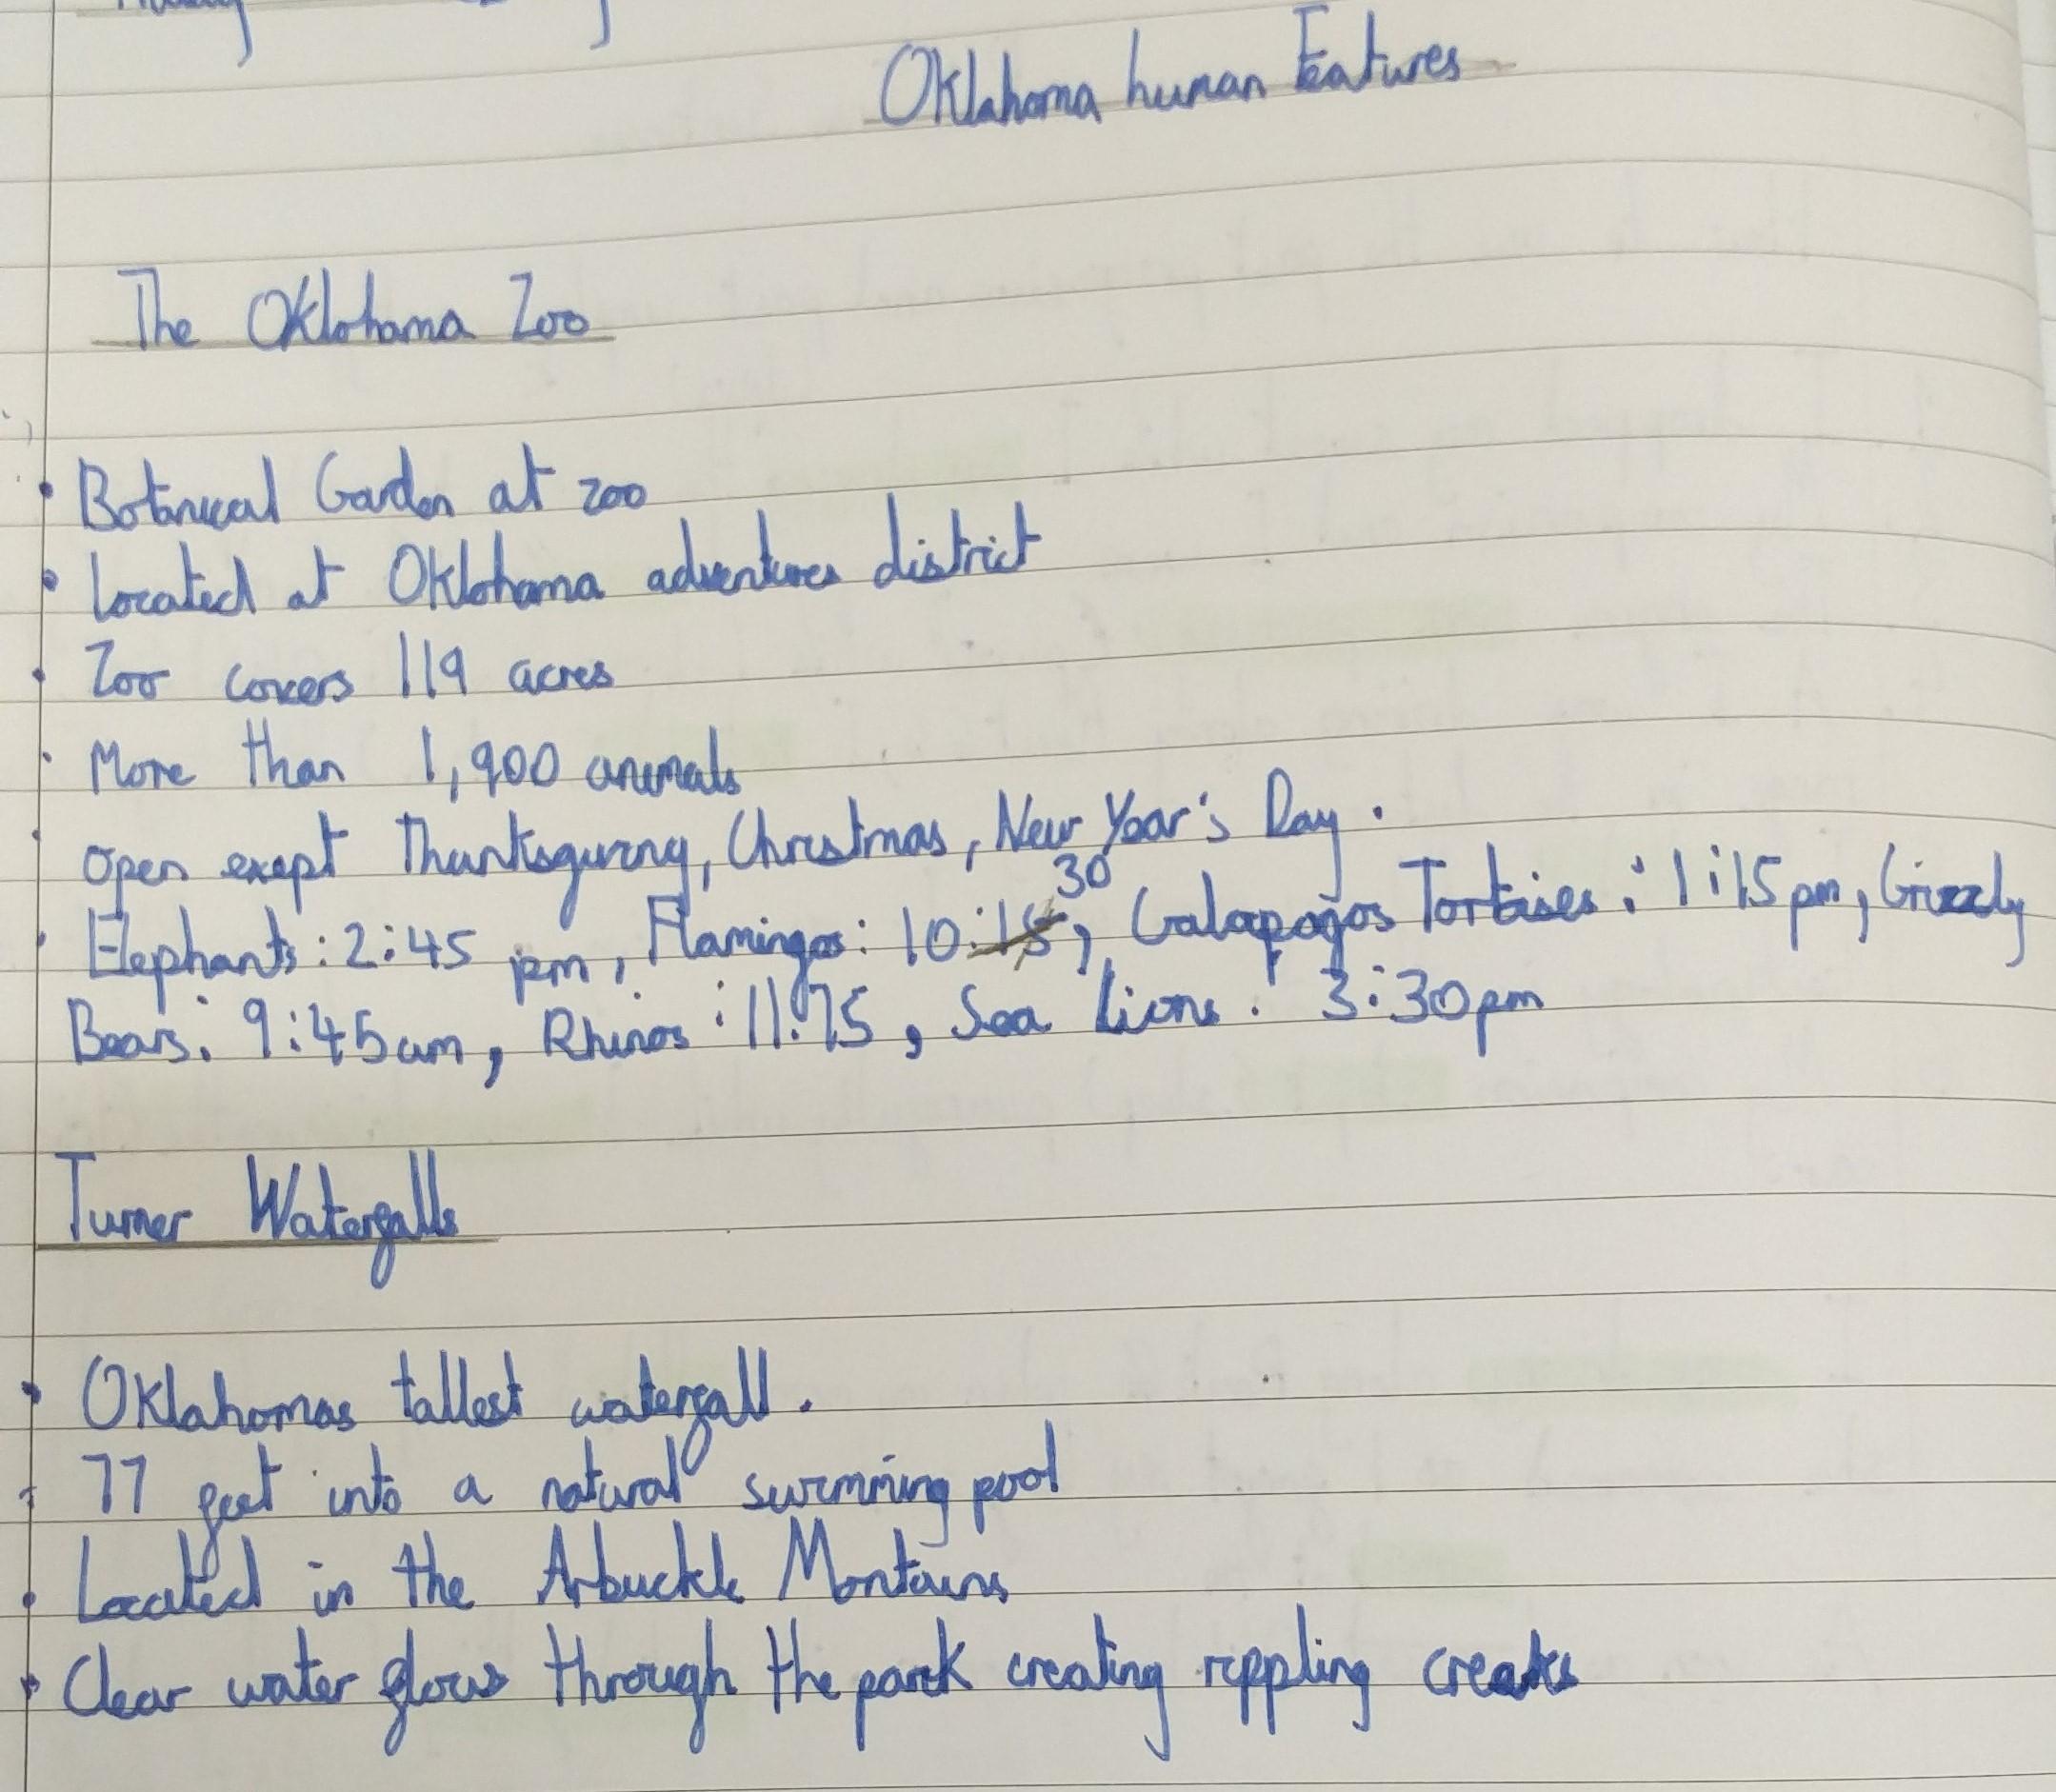 Oklahoma human Features
The Oklohama Zoo
• Botanical Garden at zoo
• Located at Oklohama adventures district
• Zoo covers 119 acres
• More than 1,900 animals
• Open exept Thanksgiving, Christmas, New Year's Day.
• Elephants: 2:45 pm, Flamingos: 10:30, Galapagos Tortoises: 1:15pm, Grizzly
Bears: 9:45am, Rhinos: 11:15, Sea Lions: 3:30pm
Turner Waterfalls
• Oklahomas tallest waterfall.
• 77 feet into a natural swimming pool
• Located in the Arbuckle Montains
• Clear water flows through the park creating rippling creaks